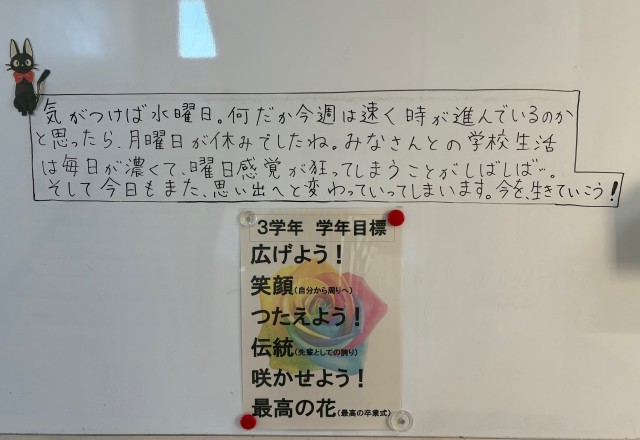 気がつけば水曜日。何だか今週は速く時が進んでいるのか
と思ったら、月曜日が休みでしたね。みなさんとの学校生活
は毎日が濃くて、曜日感覚が狂ってしまうことがしばしば…。
そして今日もまた、思い出へと変わっていってしまいます。今を、生きていこう!
3学年 学年目標
広げよう!
笑顔(自分から周りへ)
つたえよう!
伝統(先輩としての誇り)
咲かせよう!
最高の花(最高の卒業式)